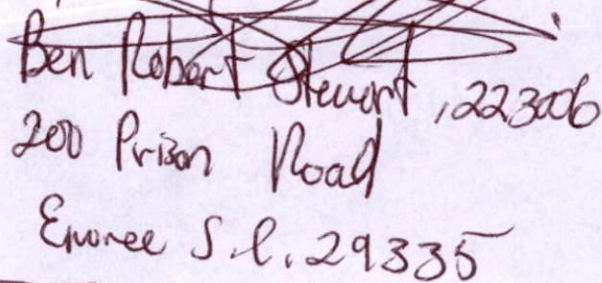 Ben Robert Stewart, 223006
200 Prison Road
Enoree S.C. 29335